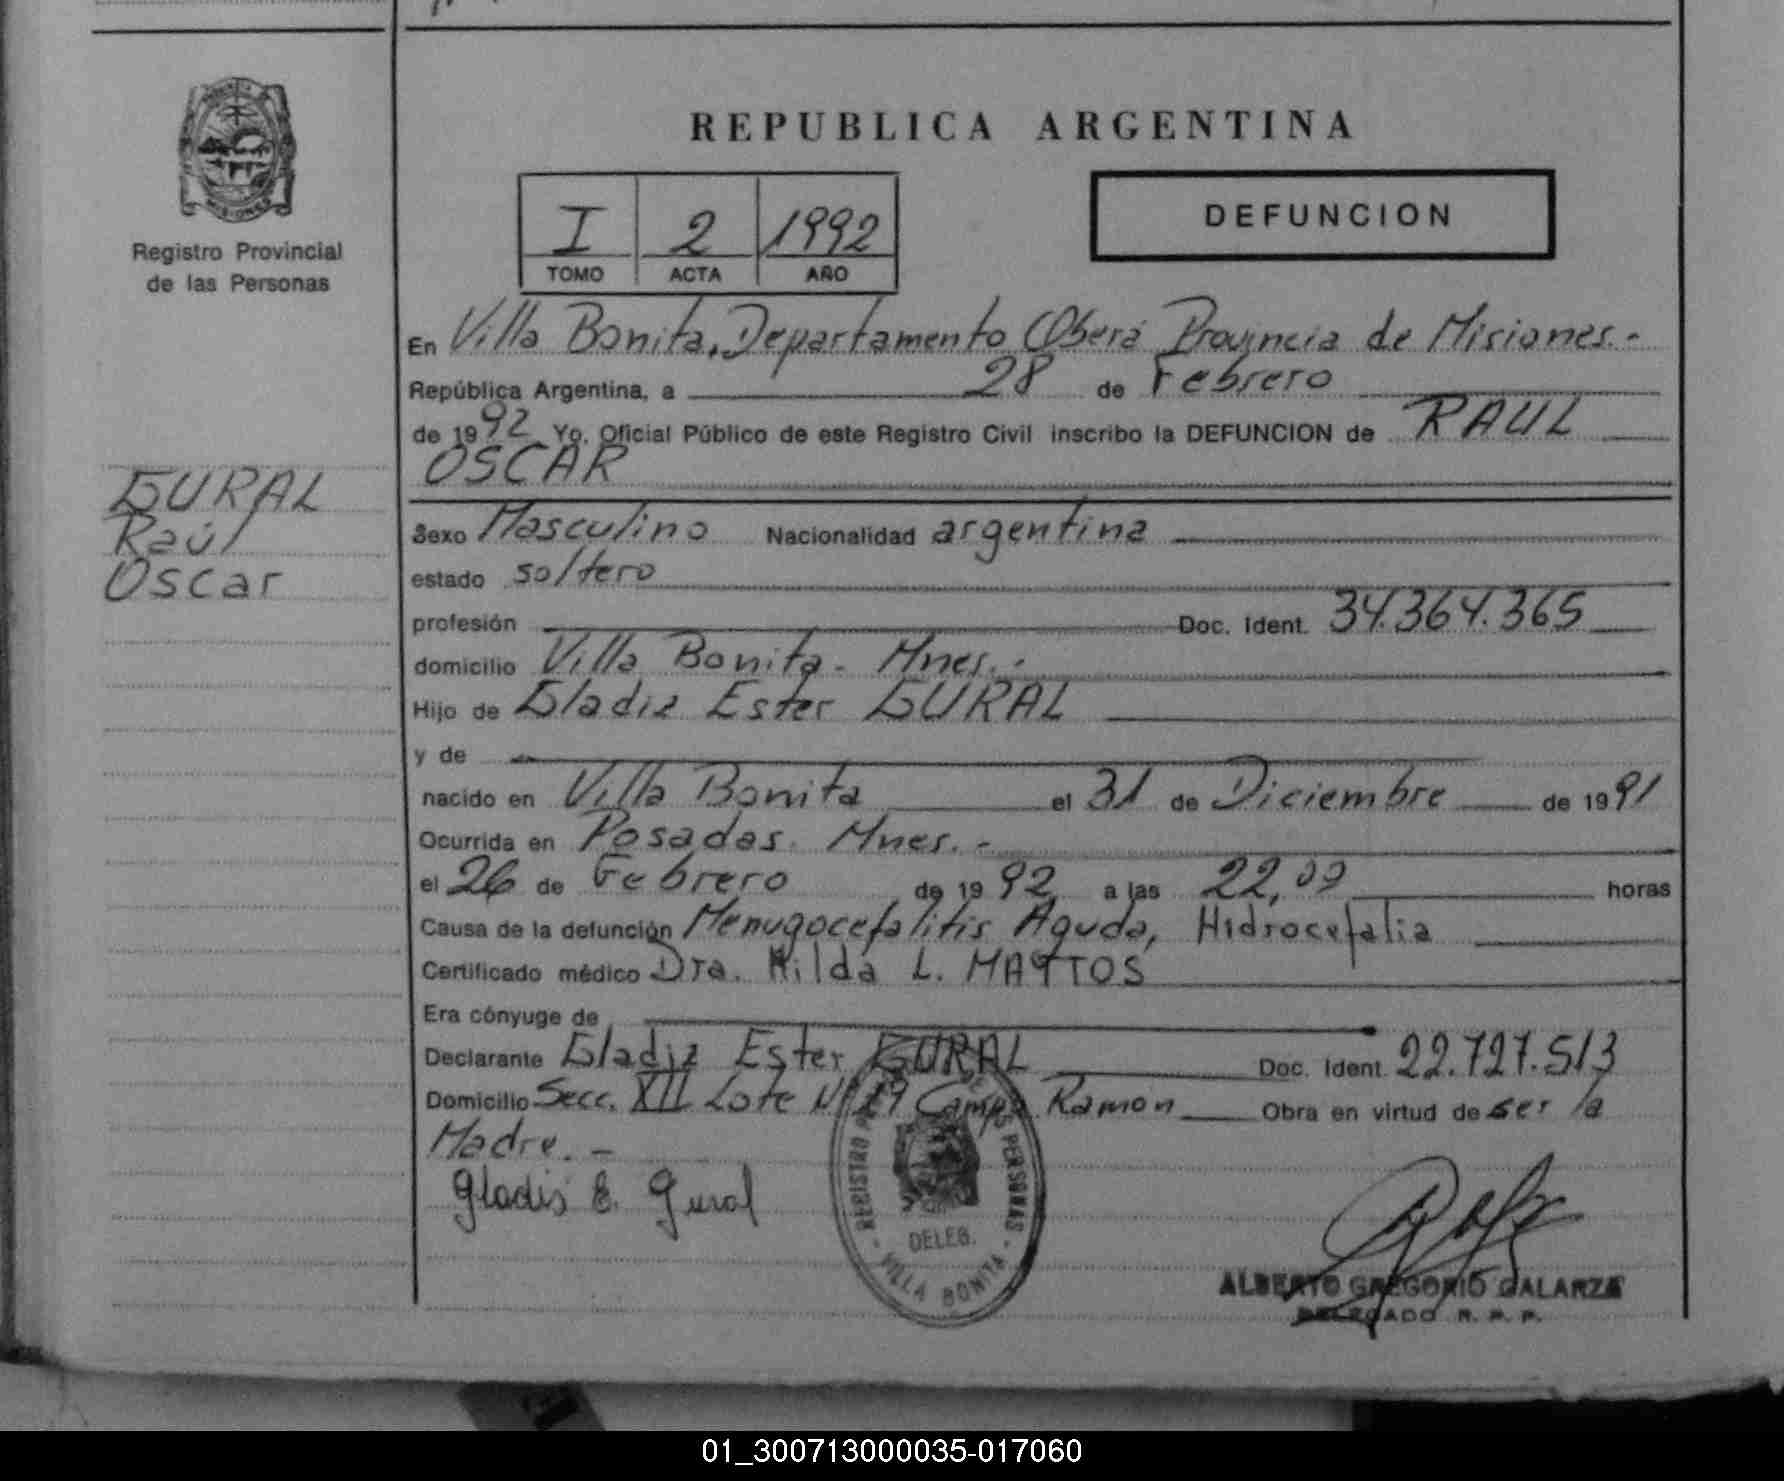 REPUBLICA ARGENTINA
MISIONES
Registro Provincial
de las Personas
I 2 1992
TOMO ACTA AÑO
DEFUNCION
En Villa Bonita, Departamento Oberá Provincia de Misiones.-
República Argentina, a 28 de Febrero
de 1992 Yo, Oficial Público de este Registro Civil inscribo la DEFUNCION de RAUL
OSCAR
GURAL
Raúl
Oscar
Sexo Masculino Nacionalidad argentina
estado soltero
profesión Doc. Ident. 34.364.365
domicilio Villa Bonita - Mnes.-
Hijo de Gladiz Ester GURAL
y de
nacido en Villa Bonita el 31 de Diciembre de 1991
Ocurrida en Posadas. Mnes.-
el 26 de Febrero de 1992 a las 22,00 horas
Causa de la defunción Menugocefalitis Aguda, Hidrocefalia
Certificado médico Dra. Hilda L. MATTOS
Era cónyuge de
Declarante Gladiz Ester GURAL Doc. Ident. 22.727.513
Domicilio Secc. XII Lote Nº Campo Ramon Obra en virtud de ser la
Madre.-
Gladis E. Gural
REGISTRO DE LAS PERSONAS
DELEG.
VILLA BONITA
ALBERTO GREGORIO GALARZA
DELEGADO R. P. P.
01_300713000035-017060